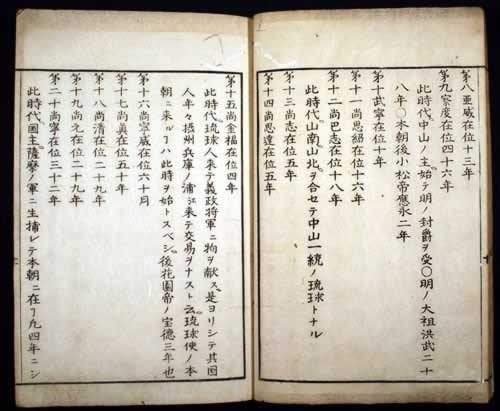 第八亜威在位十三年
第九察度在位四十六年
此時代中山ノ主始テ明ノ封爵ヲ受〇明ノ大祖洪武二十
八年〇本朝後小松帝應永二年
第十武寧在位十年
第十一尚思紹在位十六年
第十二尚巴志在位十八年
此時代山南山北ヲ合セテ中山一統ノ琉球トナル
第十三尚志在位五年
第十四尚思達在位五年
第十五尚金福在位四年
此時代琉球人来テ義政将軍ニ物ヲ献ス是ヨリシテ其国
人年々摂州兵庫ノ浦江来テ交易ヲナスト云琉球使ノ本
朝ニ来ルヿハ此時ヲ始トスベシ後花園帝ノ宝徳三年也
第十六尚寧威在位六十月
第十七尚真在位五十年
第十八尚清在位二十九年
第十九尚元在位二十九年
第二十尚寧在位三十二年
此時代国主薩摩ノ軍ニ生捕レテ本朝ニ在リヿ凡四年ニシ